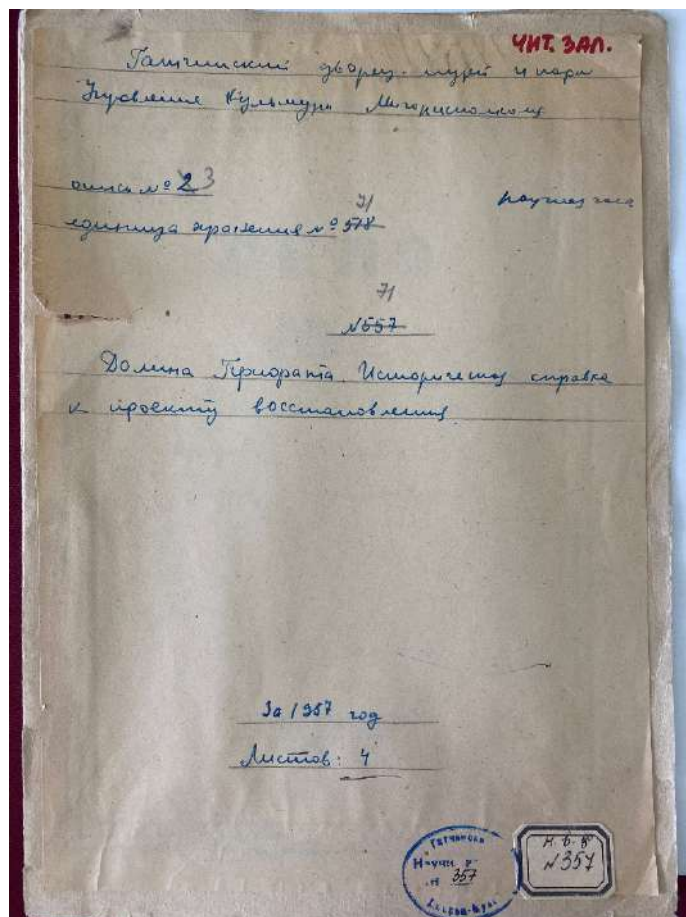 ЧИТ. ЗАЛ.
Гатчинский дворец-музей и парк
Управление Культуры Мособлисполкома
опись № 23
71
единица хранения № 578
71
№557
Долина Приората. Историческая справка
к проекту восстановления
За 1957 год
Листов: 4
ГАТЧИНСКИ
Научн
357
Дворец-Музе
Н. В. Ф
№357